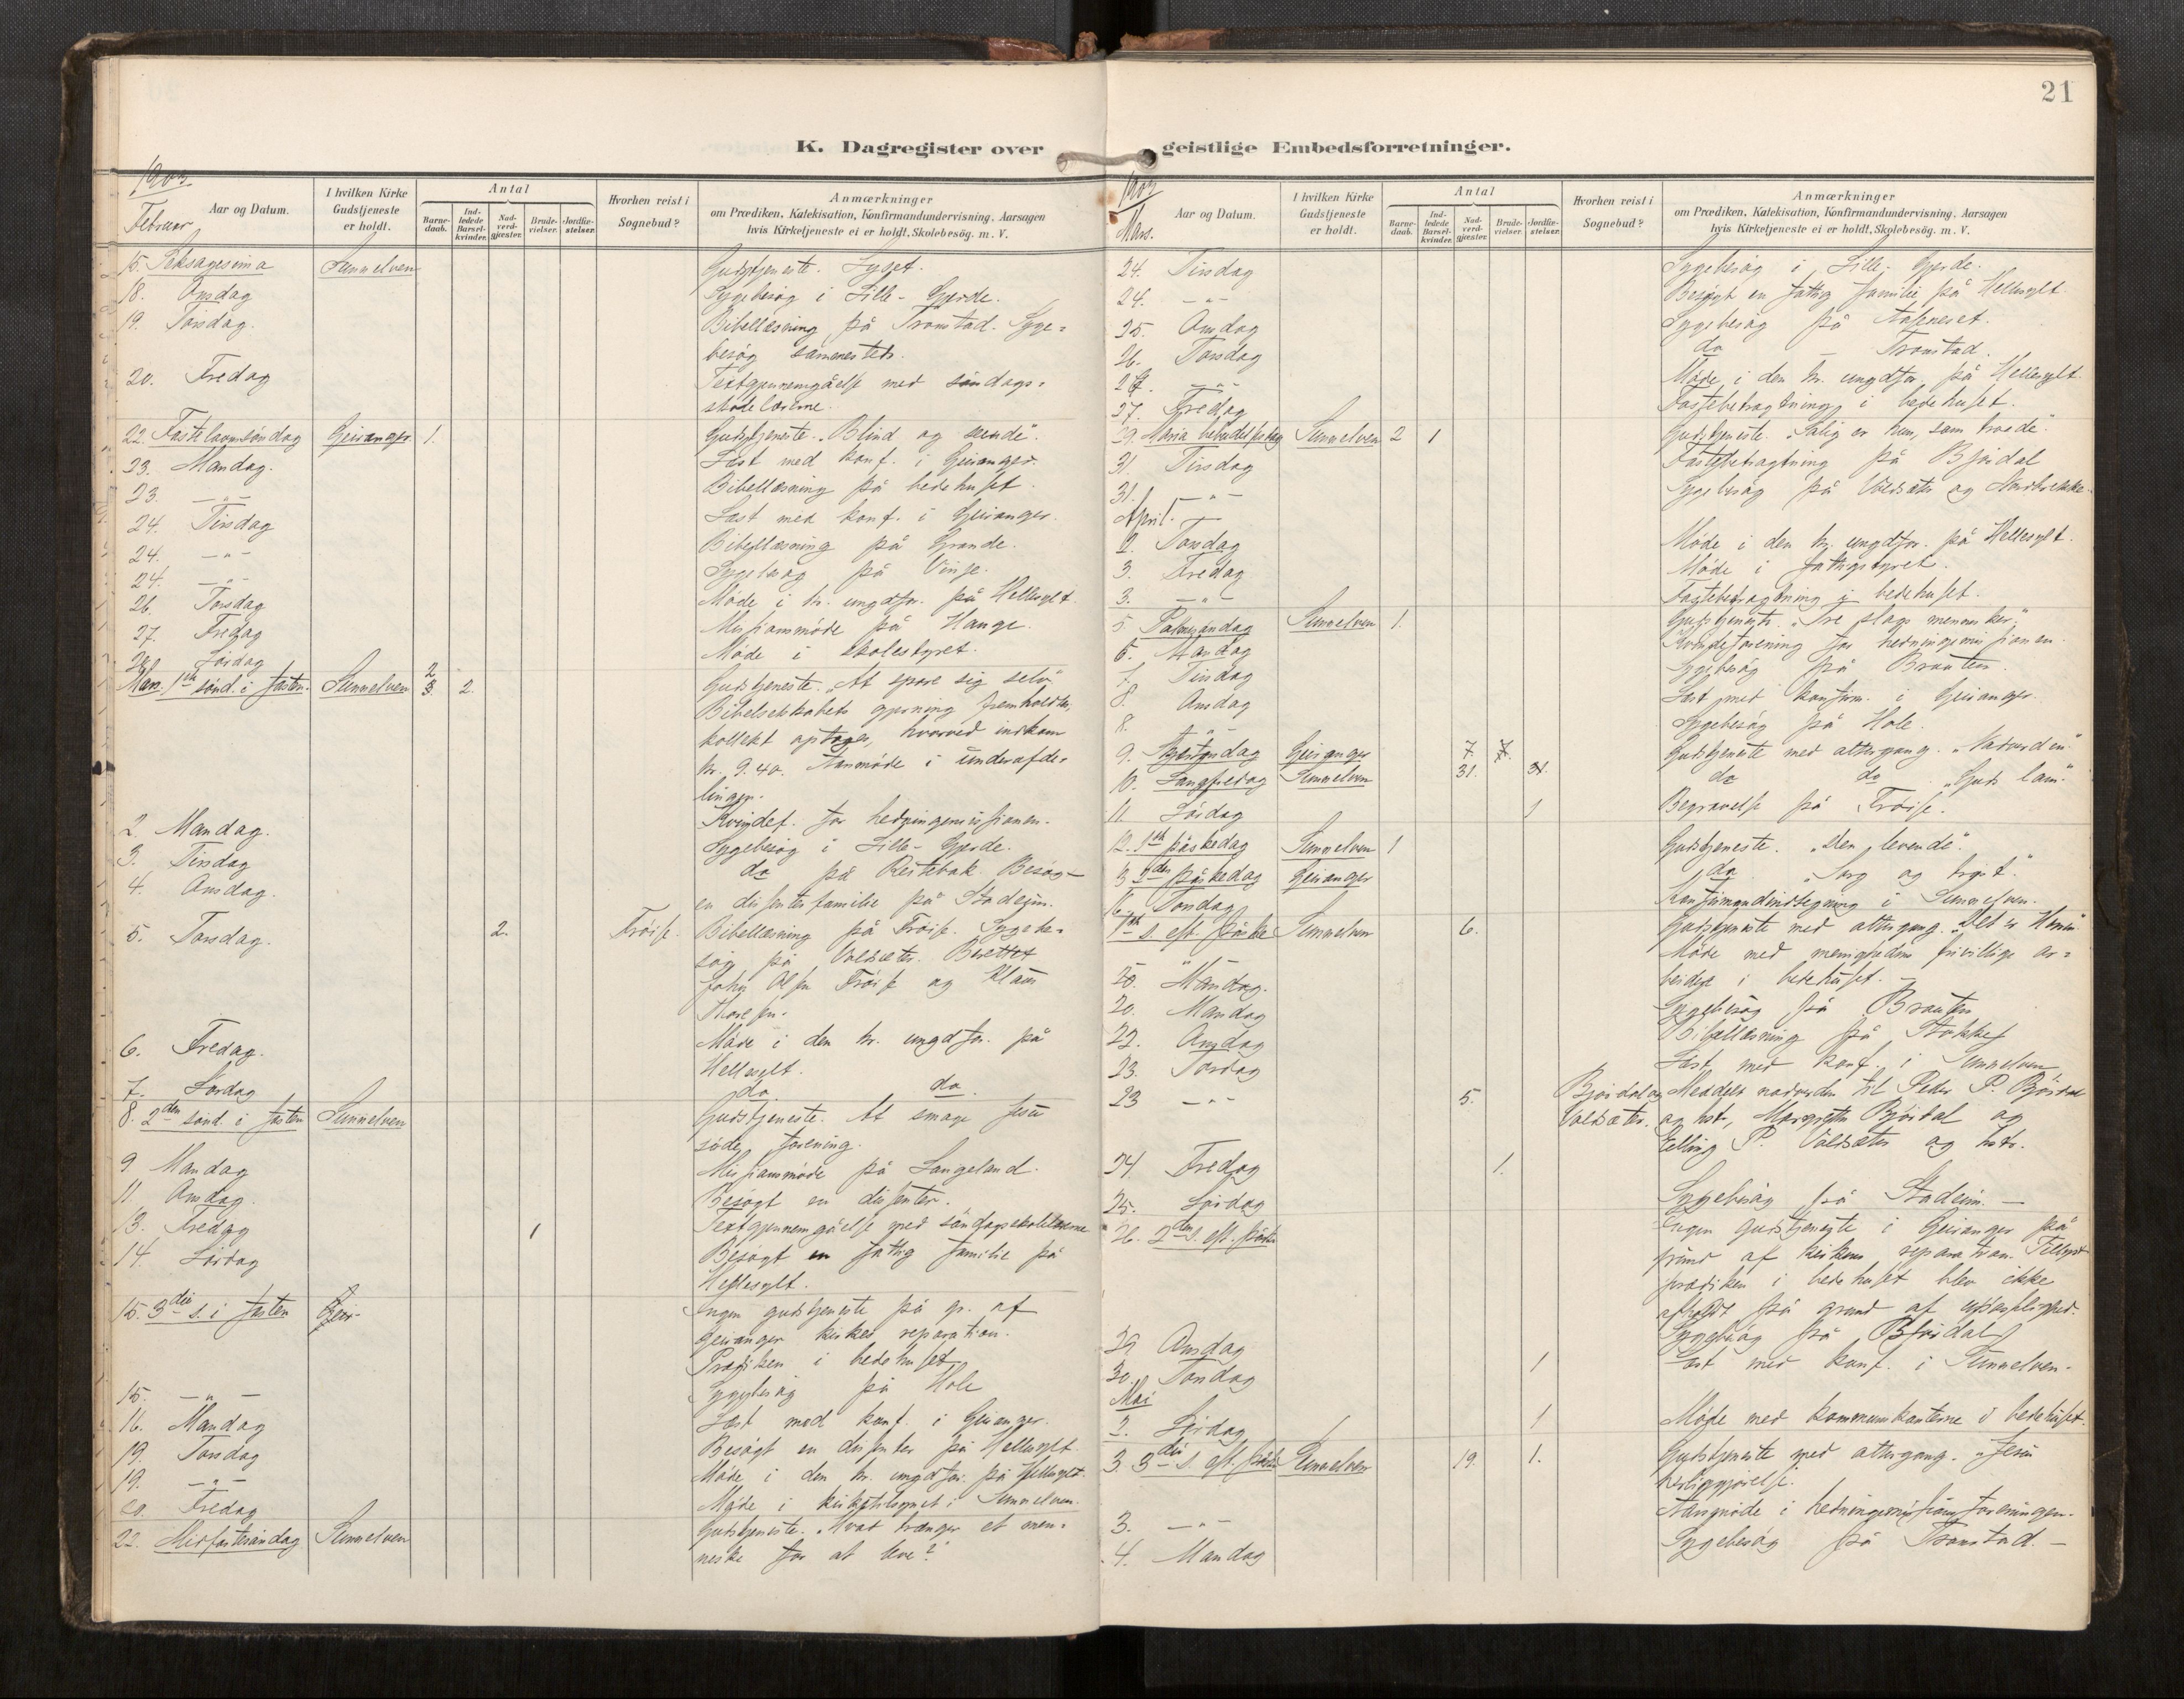 21
K. Dagregister over
1903
Februar
Aar og Datum.
I hvilken Kirke Gudstjeneste er holdt.
Antal
Barne-daab.
Ind-ledede Barsel-kvinder.
Nad-verd-gjæster.
Brude-vielser.
Jordfæ-stelser.
Hvorhen reist i Sognebud?
Anmærkninger
om Prædiken, Katekisation, Konfirmandundervisning. Aarsagen
hvis Kirketjeneste ei er holdt, Skolebesög. m. V.
15. Seksagesima Sunnelven Gudstjeneste. Lyset.
18. Onsdag Sygebesøg i Lille-Gjerde.
19. Torsdag. Bibellæsning på Tronstad. Syge=
besøg sammesteds.
20. Fredag Textgjennemgåelse med søndags=
skolelærerne.
22. Fastelavnsøndag Geiranger 1. Gudstjeneste. "Blind og seende".
23. Mandag. Læst med konf. i Geiranger.
23. —"— Bibellæsning på bedehuset.
24. Tirsdag Læst med konf. i Geiranger.
24. —"— Bibellæsning på Grande.
24. —"— Sygebesøg på Vinje.
26. Torsdag Møde i kr. ungdfor. på Hellesylt
27. Fredag Missionsmøde på Hauge.
28. Lørdag Møde i skolestyret.
Mars. 1ste sønd. i fasten. Sunnelven 2 3 2. Gudstjeneste. "At spare sig selv"
Bibelselskabets gjerning fremholdtes,
kollekt optoges, hvorved indkom
kr. 9.40. Aarsmøde i underafde=
lingen.
2. Mandag. Kvindef. for hedningemissionen.
3. Tirsdag Sygebesøg i Lille-Gjerde.
4. Onsdag. do på Ristebak. Besøg
en dissenterfamilie på Stadeim.
5. Torsdag. 2. Frøise. Bibellæsning på Frøise. Sygebe=
søg på Voldsæter. Berettet
John Olsen Frøise og Klaus
Thoresen.
6. Fredag. Møde i den kr. ungdfor. på
Hellesylt.
7. Lørdag do. do.
8. 2den sønd. i fasten Sunnelven Gudstjeneste. At smage Jesu
søde forening.
9. Mandag Missionsmøde på Langeland.
11. Onsdag. Besøgt en dissenter.
13. Fredag 1 Textgjennemgåelse med søndagsskolelærerne
14. Lørdag Besøgt en fattig familie på
Hellesylt.
15. 3die s. i fasten Geir- Ingen gudstjeneste på gr. af
Geiranger kirkes reparation.
Prædiken i bedehuset
15. —"— Sygebesøg på Hole
16. Mandag Læst med konf. i Geiranger.
19. Torsdag Besøgt en dissenter på Hellesylt
19. —"— Møde i den kr. ungdfor. på Hellesylt.
20. Fredag Møde i kirketilsynet i Sunnelven.
22. Midfastesøndag Sunnelven Gudstjeneste. "Hvad trænger et men=
neske for at leve?"
geistlige Embedsforretninger.
1903
Mars.
Aar og Datum.
I hvilken Kirke Gudstjeneste er holdt.
Antal
Barne-daab.
Ind-ledede Barsel-kvinder.
Nad-verd-gjæster.
Brude-vielser.
Jordfæ-stelser.
Hvorhen reist i Sognebud?
Anmærkninger
om Prædiken, Katekisation, Konfirmandundervisning. Aarsagen
hvis Kirketjeneste ei er holdt, Skolebesög. m. V.
24. Tirsdag Sygebesøg i Lille-Gjerde.
24. —"— Besøgt en fattig familie på Hellesylt.
25. Onsdag Sygebesøg på
26. Torsdag do — Tronstad.
26. —"— Møde i den kr. ungdfor. på Hellesylt.
27. Fredag Fastebetragtning i bedehuset.
29. Maria bebudelsesdag Sunnelven 2 1 Gudstjeneste. "Salig er hun, som troede".
31. Tirsdag Fastebetragtning på Bjørdal
31. —"— Sygebesøg på Voldsæter og Nordbrekke.
April.
2. Torsdag Møde i den kr. ungdfor. på Hellesylt.
3. Fredag Møde i fattigstyret.
3. —"— Fastebetragtning i bedehuset.
5. Palmesøndag Sunnelven 1. Gudstjeneste. "Tre slags mennesker".
6. Mandag Kvindeforening for hedningemissionen.
7. Tirsdag Sygebesøg på Brauten.
8. Onsdag Læst med konfirm. i Geiranger.
8. —"— Sygebesøg på Hole.
9. Skjærtorsdag Geiranger 7. 7. Gudstjeneste med altergang. "Nadverden".
10. Langfredag Sunnelven 31. 31. do do "Guds lam".
11. Lørdag 1 Begravelse på Frøise.
12. 1ste påskedag Sunnelven 1 Gudstjeneste. "Den levende".
13 2den påskedag Geiranger do. "Sorg og trøst".
16. Torsdag Konfirmandindtegning i Sunnelven.
1ste s. eft. påske Sunnelven 6. Gudstjeneste med altergang. "Det er Herren"
Møde med menighedens frivillige ar=
20. Mandag. beidere i bedehuset.
20. Mandag Sygebesøg på Brauten
22. Onsdag Bibellæsning på Stokke
23. Torsdag Læst med konf. i Sunnelven
23 —"— 5. Bjørdal og Meddelt nadverden til Peder P. Bjørdal
Voldsæter. og hst., Margrethe Bjørdal og
Elling P. Voldsæter og hstr.
24. Fredag 1.
25. Lørdag Sygebesøg på Stadeim. —
26. 2den s. eft. påske Ingen gudstjeneste i Geiranger på
grund af kirkens reparation. Tillyst
prædiken i bedehuset blev ikke
afholdt på grund af upasselighed.
29 Onsdag Sygebesøg på Bjørdal
30. Torsdag 1 Læst med konf. i Sunnelven.
Mai
2. Lørdag 1 Møde med kommunikanterne i bedehuset.
3. 3die s. eft. påske Sunnelven 19. 1. Gudstjeneste med altergang. "Jesu
herliggjørelse.
3. —"— Aarsmøde i hedningemissionsforeningen.
4. Mandag Sygebesøg på Tronstad. —